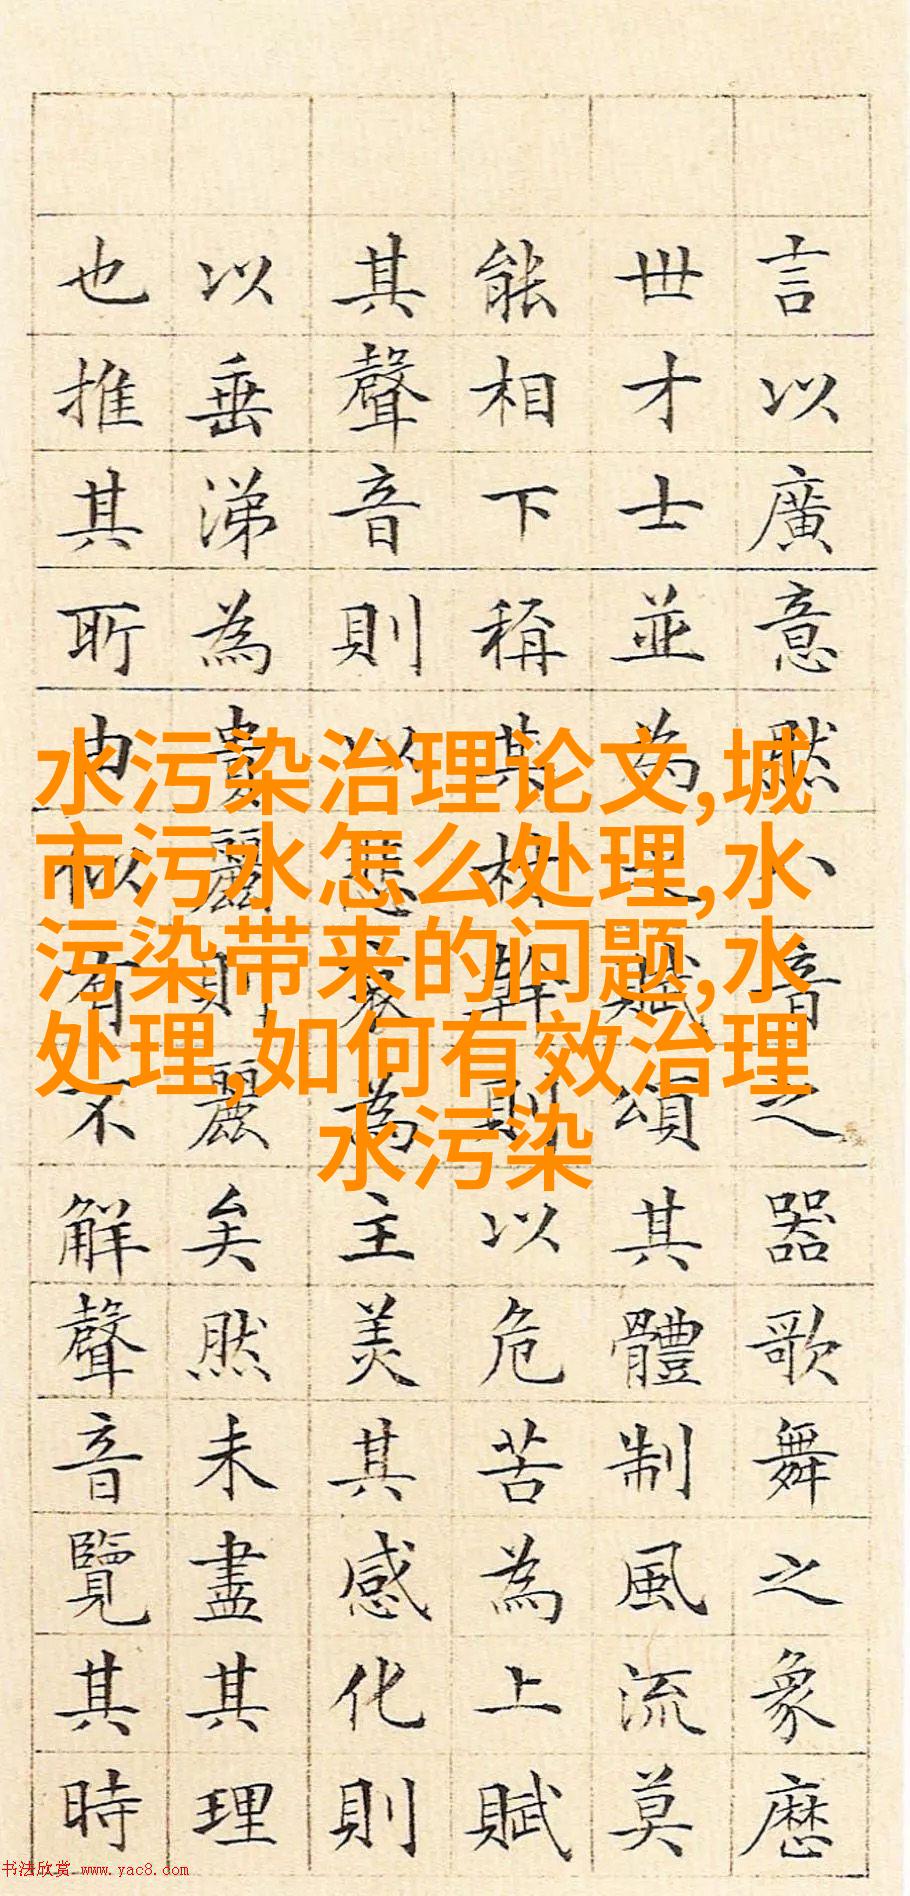 言以廣意然八音之器歌舞之象歷
世才士並為之賦頌其體制風流莫
能相下稱其材幹則以危苦為上賦
其聲音則以悲哀為主美其感化則
以垂涕為貴麗則麗矣然未盡其理
也推其所由似有不解聲音覽其時
水污染治理论文,城
市污水怎么处理,水
污染带来的问题,水
处理,如何有效治理
水污染
书法欣赏 www.yac8.com